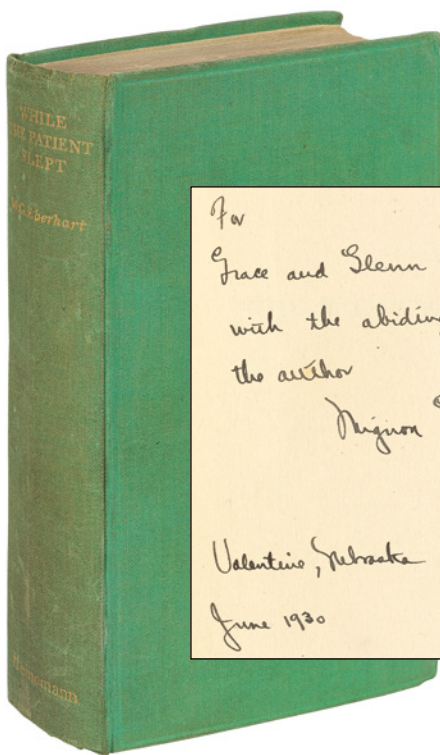 WHILE
THE PATIENT
SLEPT
M.G. Eberhart
Heinemann
For
Grace and Glenn
with the abiding
the author
Mignon
Valentine, Nebraska
June 1930